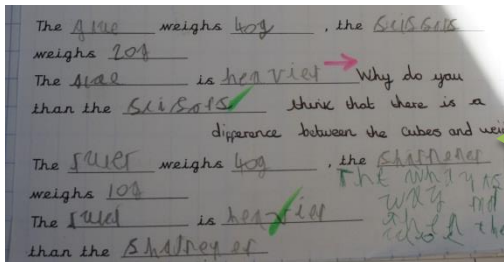 The glue weighs 40g, the scissors
weighs 20g
The glue is heavier → Why do you
than the scisors think that there is a
difference between the cubes and wei
The ruler weighs 40g, the sharpener
weighs 10g
The ruler is heavier
than the Shalreper
The
way